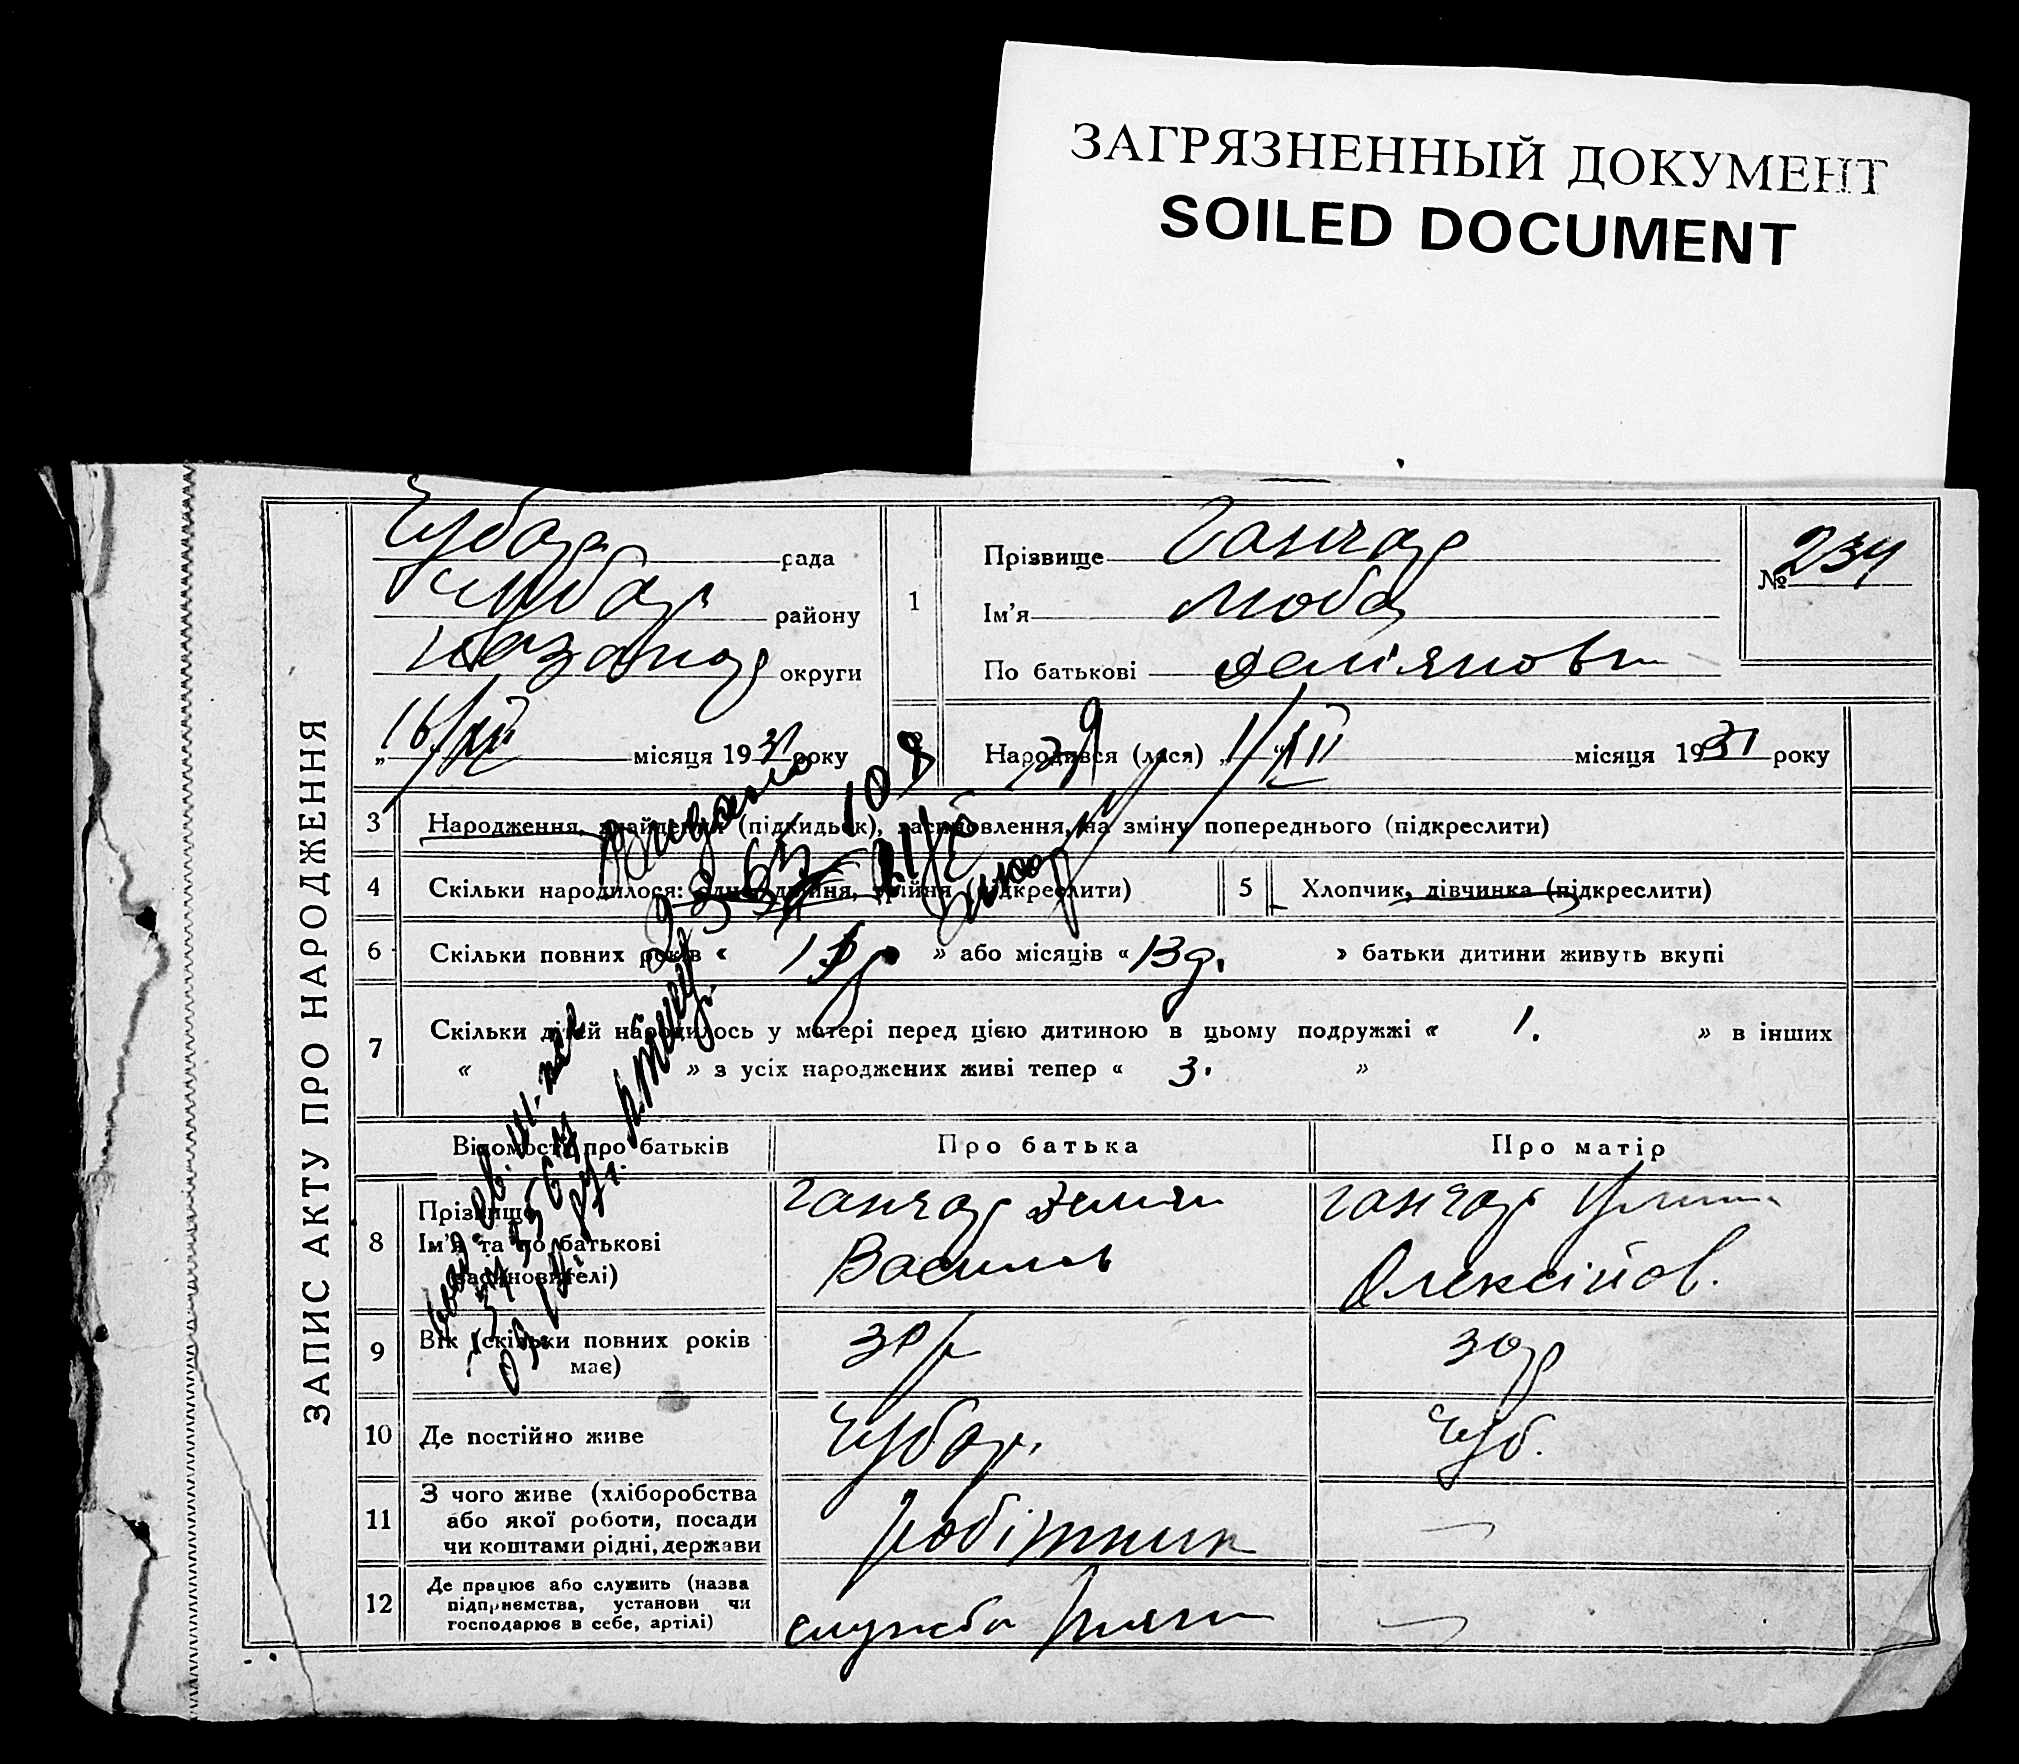 ЗАГРЯЗНЕННЫЙ ДОКУМЕНТ
SOILED DOCUMENT
ЗАПИС АКТУ ПРО НАРОДЖЕННЯ
Чубар рада
Чубар району
округи
16/XII місяця 1931 року
1
Прізвище Ганчар
Ім'я Люба
По батькові Деміяновн
№ 234
Народився (лася) місяця 1931 року
3 Народження, знайдення (підкидьок), засиновлення, на зміну попереднього (підкреслити)
4 Скільки народилося: одна, двійня, трійня (підкреслити)
5 Хлопчик, дівчинка (підкреслити)
6 Скільки повних років « » або місяців « 13 р. » батьки дитини живуть вкупі
7 Скільки дітей народилось у матері перед цією дитиною в цьому подружжі « 1. » в інших
« » з усіх народжених живі тепер « 3. »
Відомості про батьків
Про батька
Про матір
8 Прізвище
Ім'я та по батькові
(засиновителі)
Ганчар Демян
Василів
Ганчар
Олексійов.
9 Вік (скільки повних років
має)
30 р
30 р
10 Де постійно живе
Чубар.
Чуб.
11 З чого живе (хліборобства
або якої роботи, посади
чи коштами рідні, держави
робітник
12 Де працює або служить (назва
підприємства, установи чи
господарює в себе, артілі)
служба тяги